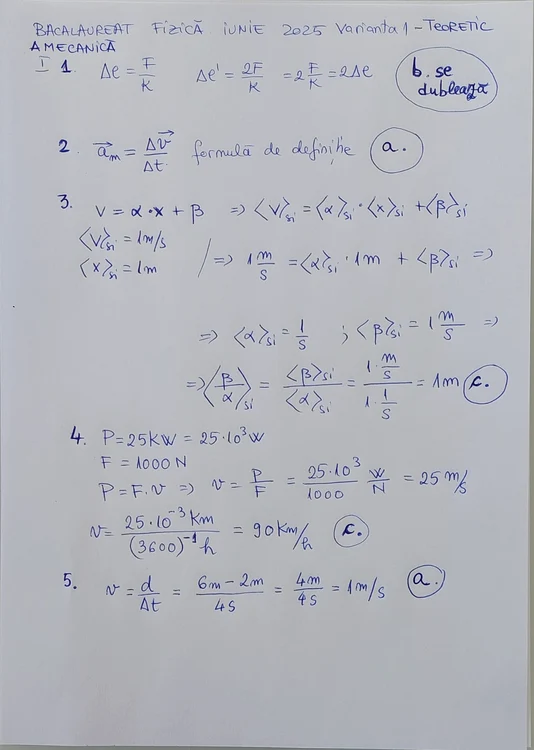 BACALAUREAT FIZICĂ IUNIE 2025 Varianta 1 - TEORETIC
A MECANICĂ
I 1. Δe = F/K Δe' = 2F/K = 2 F/K = 2Δe b. se dublează
2. a⃗m = Δv⃗/Δt formulă de definiție a.
3. V = α·x + β => <V>si = <α>si·<x>si + <β>si
<V>si = 1m/s
<x>si = 1m / => 1 m/s = <α>si · 1m + <β>si =>
=> <α>si = 1/s ; <β>si = 1 m/s =>
=> <β/α>si = <β>si/<α>si = (1·m/s)/(1·1/s) = 1m c.
4. P = 25KW = 25·10³W
F = 1000 N
P = F·v => v = P/F = 25·10³/1000 W/N = 25 m/s
v = 25·10⁻³ Km/(3600)⁻¹ h = 90 Km/h c.
5. v = d/Δt = (6m - 2m)/4s = 4m/4s = 1m/s a.